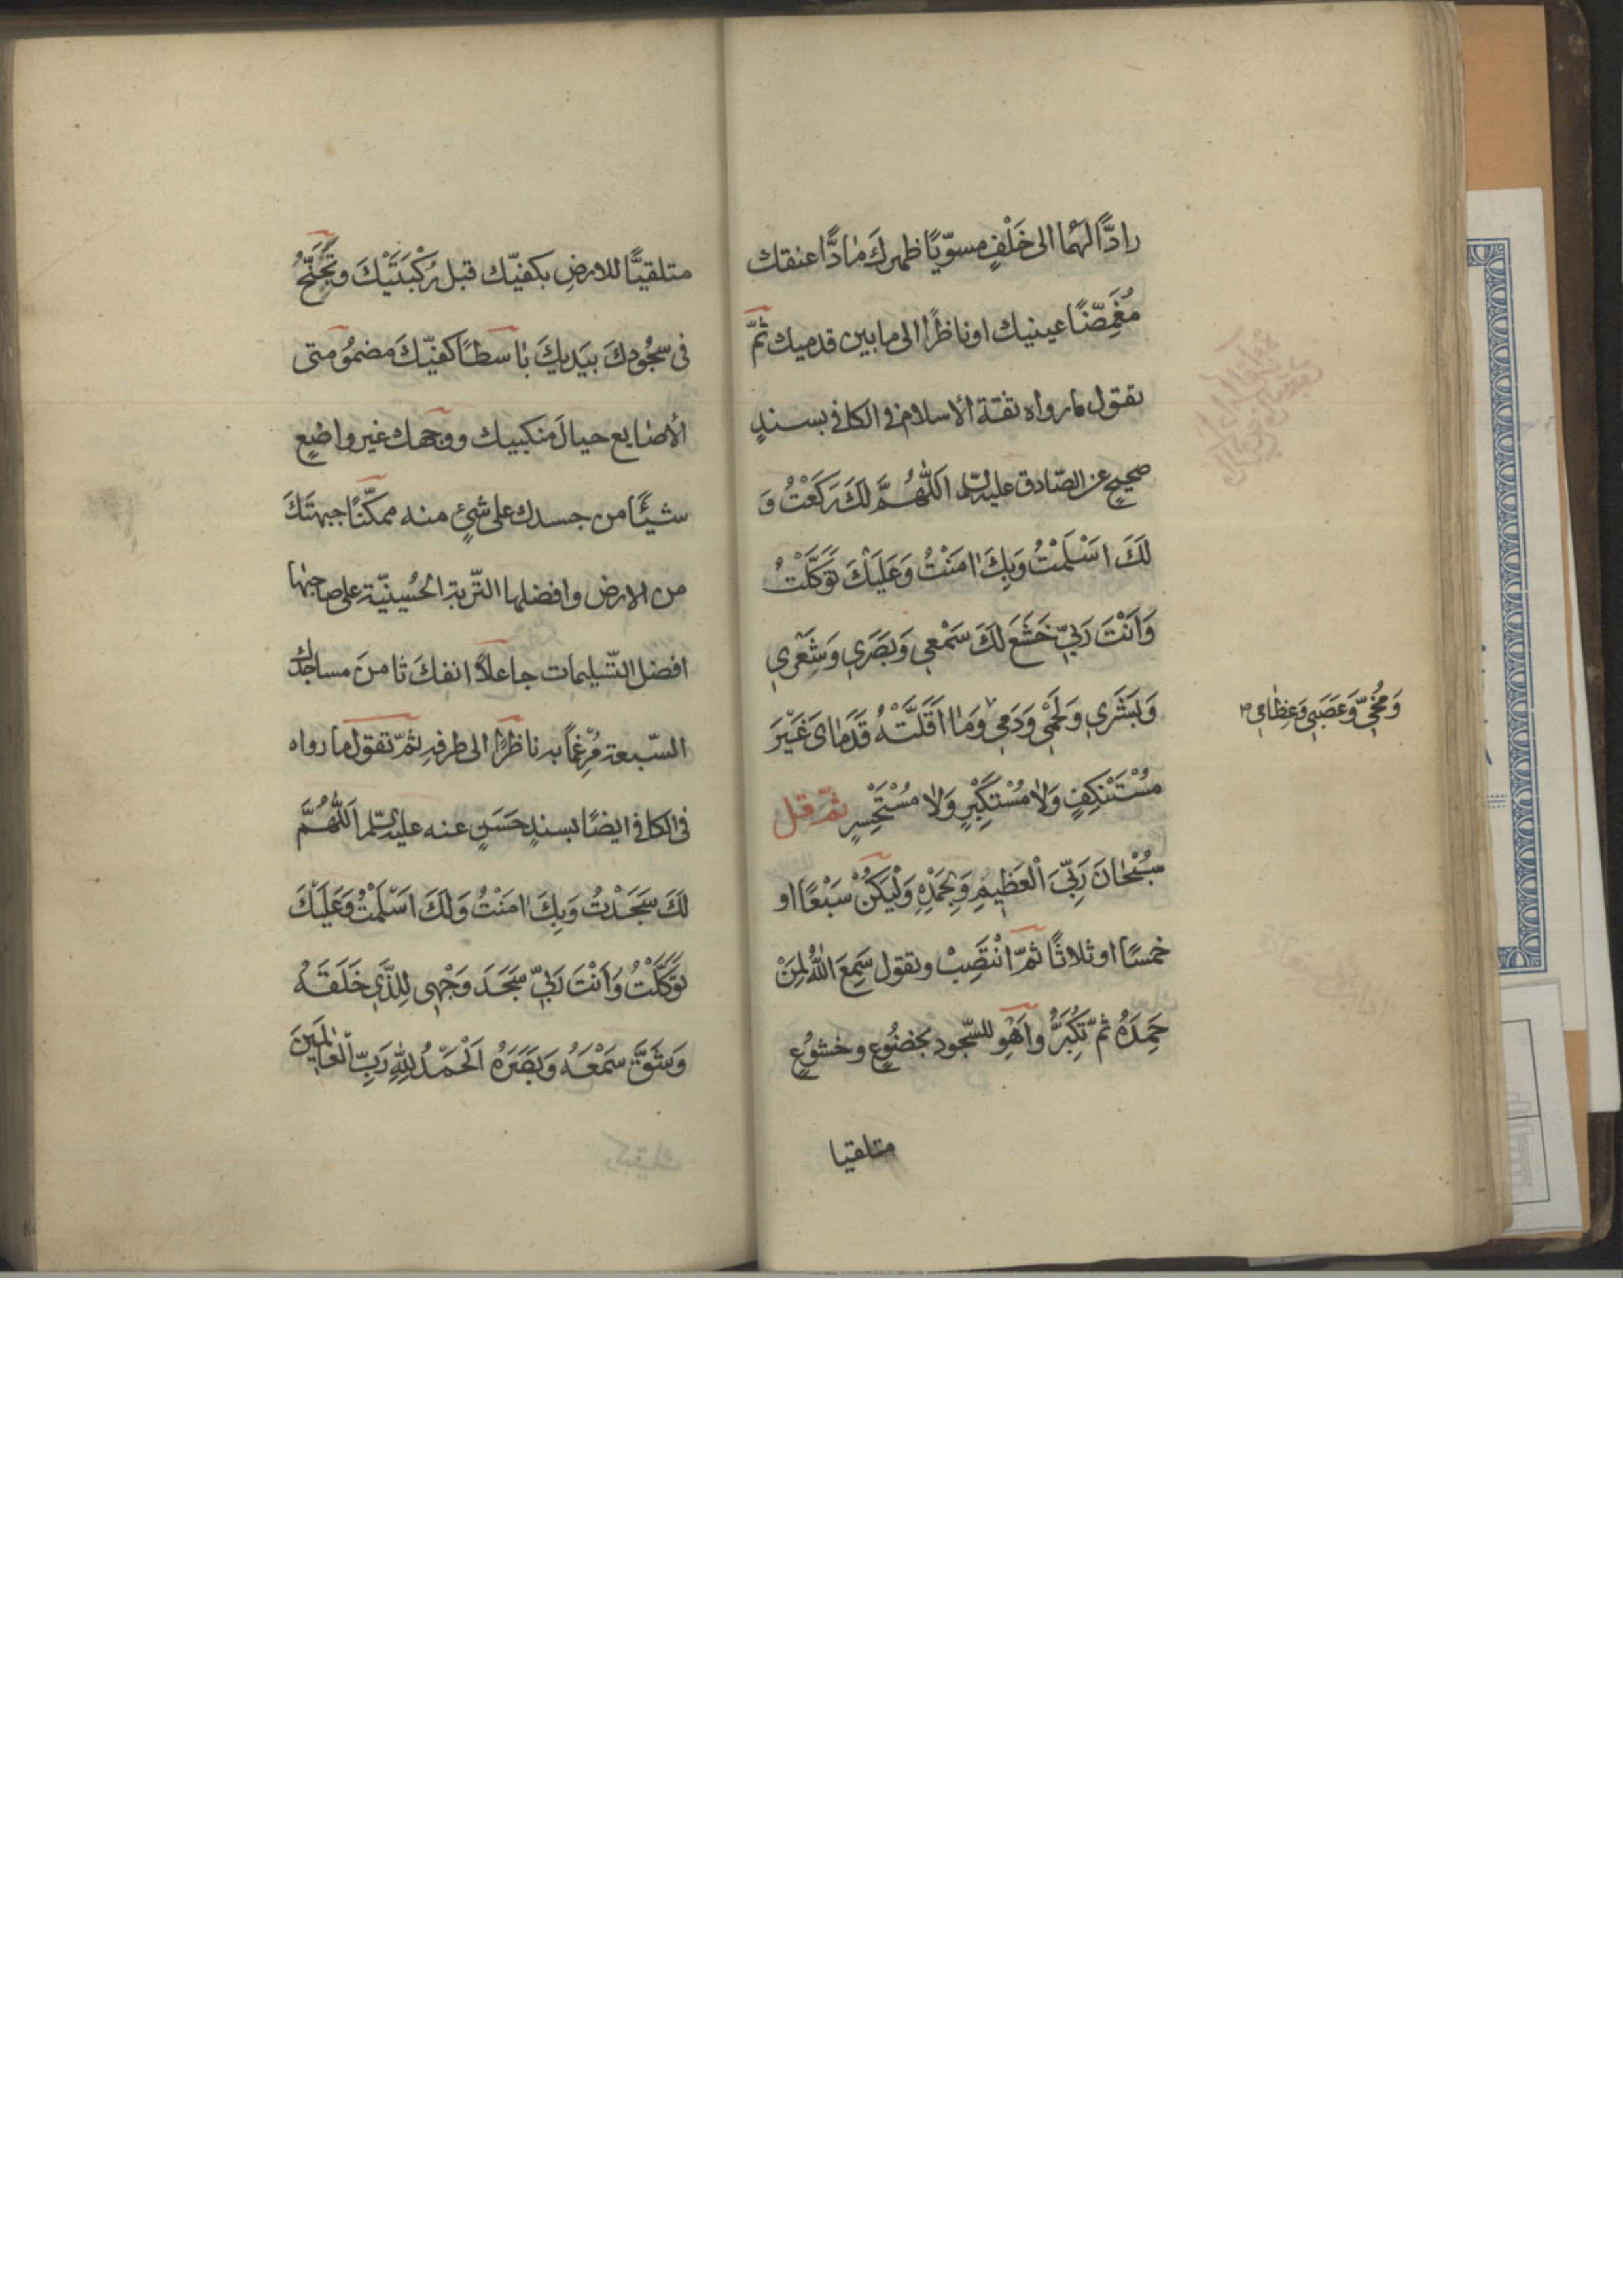 رادًّا لهما الى خَلْفٍ مسوّيًا ظهرك مادًّا عنقك
مُغَمِّضًا عينيك او ناظرًا الى ما بين قدميك ثمّ
تقول ما رواه ثقة الاسلام فى الكافى بسندٍ
صحيحٍ عن الصّادق عليه السلم اَللّٰهُمَّ لَكَ رَكَعْتُ وَ
لَكَ اَسْلَمْتُ وَبِكَ اٰمَنْتُ وَعَلَيْكَ تَوَكَّلْتُ
وَاَنْتَ رَبِّي خَشَعَ لَكَ سَمْعِي وَبَصَرِي وَشَعْرِي
وَبَشَرِي وَلَحْمِي وَدَمِي وَمٰا اَقَلَّتْهُ قَدَمٰاىَ غَيْرَ
وَمُخِّي وَعَصَبِي وَعِظٰامِي
مُسْتَنْكِفٍ وَلاٰ مُسْتَكْبِرٍ وَلاٰ مُسْتَحْسِرٍ ثمّ قل
سُبْحٰانَ رَبِّيَ الْعَظِيمِ وَبِحَمْدِهِ وَلْيَكُنْ سَبْعًا او
خمسًا او ثلاثًا ثمّ انْتَصِبْ وتقول سَمِعَ اللّٰهُ لِمَنْ
حَمِدَهُ ثمّ تُكَبِّرُ واَهْوِ للسّجود بخضُوعٍ وخشوُعٍ
متلقيا
متلقيًّا للارضِ بكفيّك قبل رُكْبَتَيْكَ وتُجَنِّحُ
فى سجُودكَ بيَديكَ بٰاسطًا كفيّكَ مضمُومتى
الأصٰابع حيالَ منكبيك ووجهك غير واضِعٍ
شيئًا من جسدك على شئٍ منه ممكّنًا جبهتَكَ
من الارض وافضلها التّربة الحُسينيّة على صاحبها
افضل التّسليمات جاعلاً انفكَ ثامنَ مساجدك
السّبعة مُرْغِماً به ناظرًا الى طرفهِ ثمّ تقول ما رواه
فى الكافى ايضًا بسندٍ حَسَنٍ عنه عليه السّلم اَللّٰهُمَّ
لَكَ سَجَدْتُ وَبِكَ اٰمَنْتُ وَلَكَ اَسْلَمْتُ وَعَلَيْكَ
تَوَكَّلْتُ وَاَنْتَ رَبِّي سَجَدَ وَجْهِي لِلَّذِي خَلَقَهُ
وَشَقَّ سَمْعَهُ وَبَصَرَهُ اَلْحَمْدُ لِلّٰهِ رَبِّ الْعٰالَمِينَ